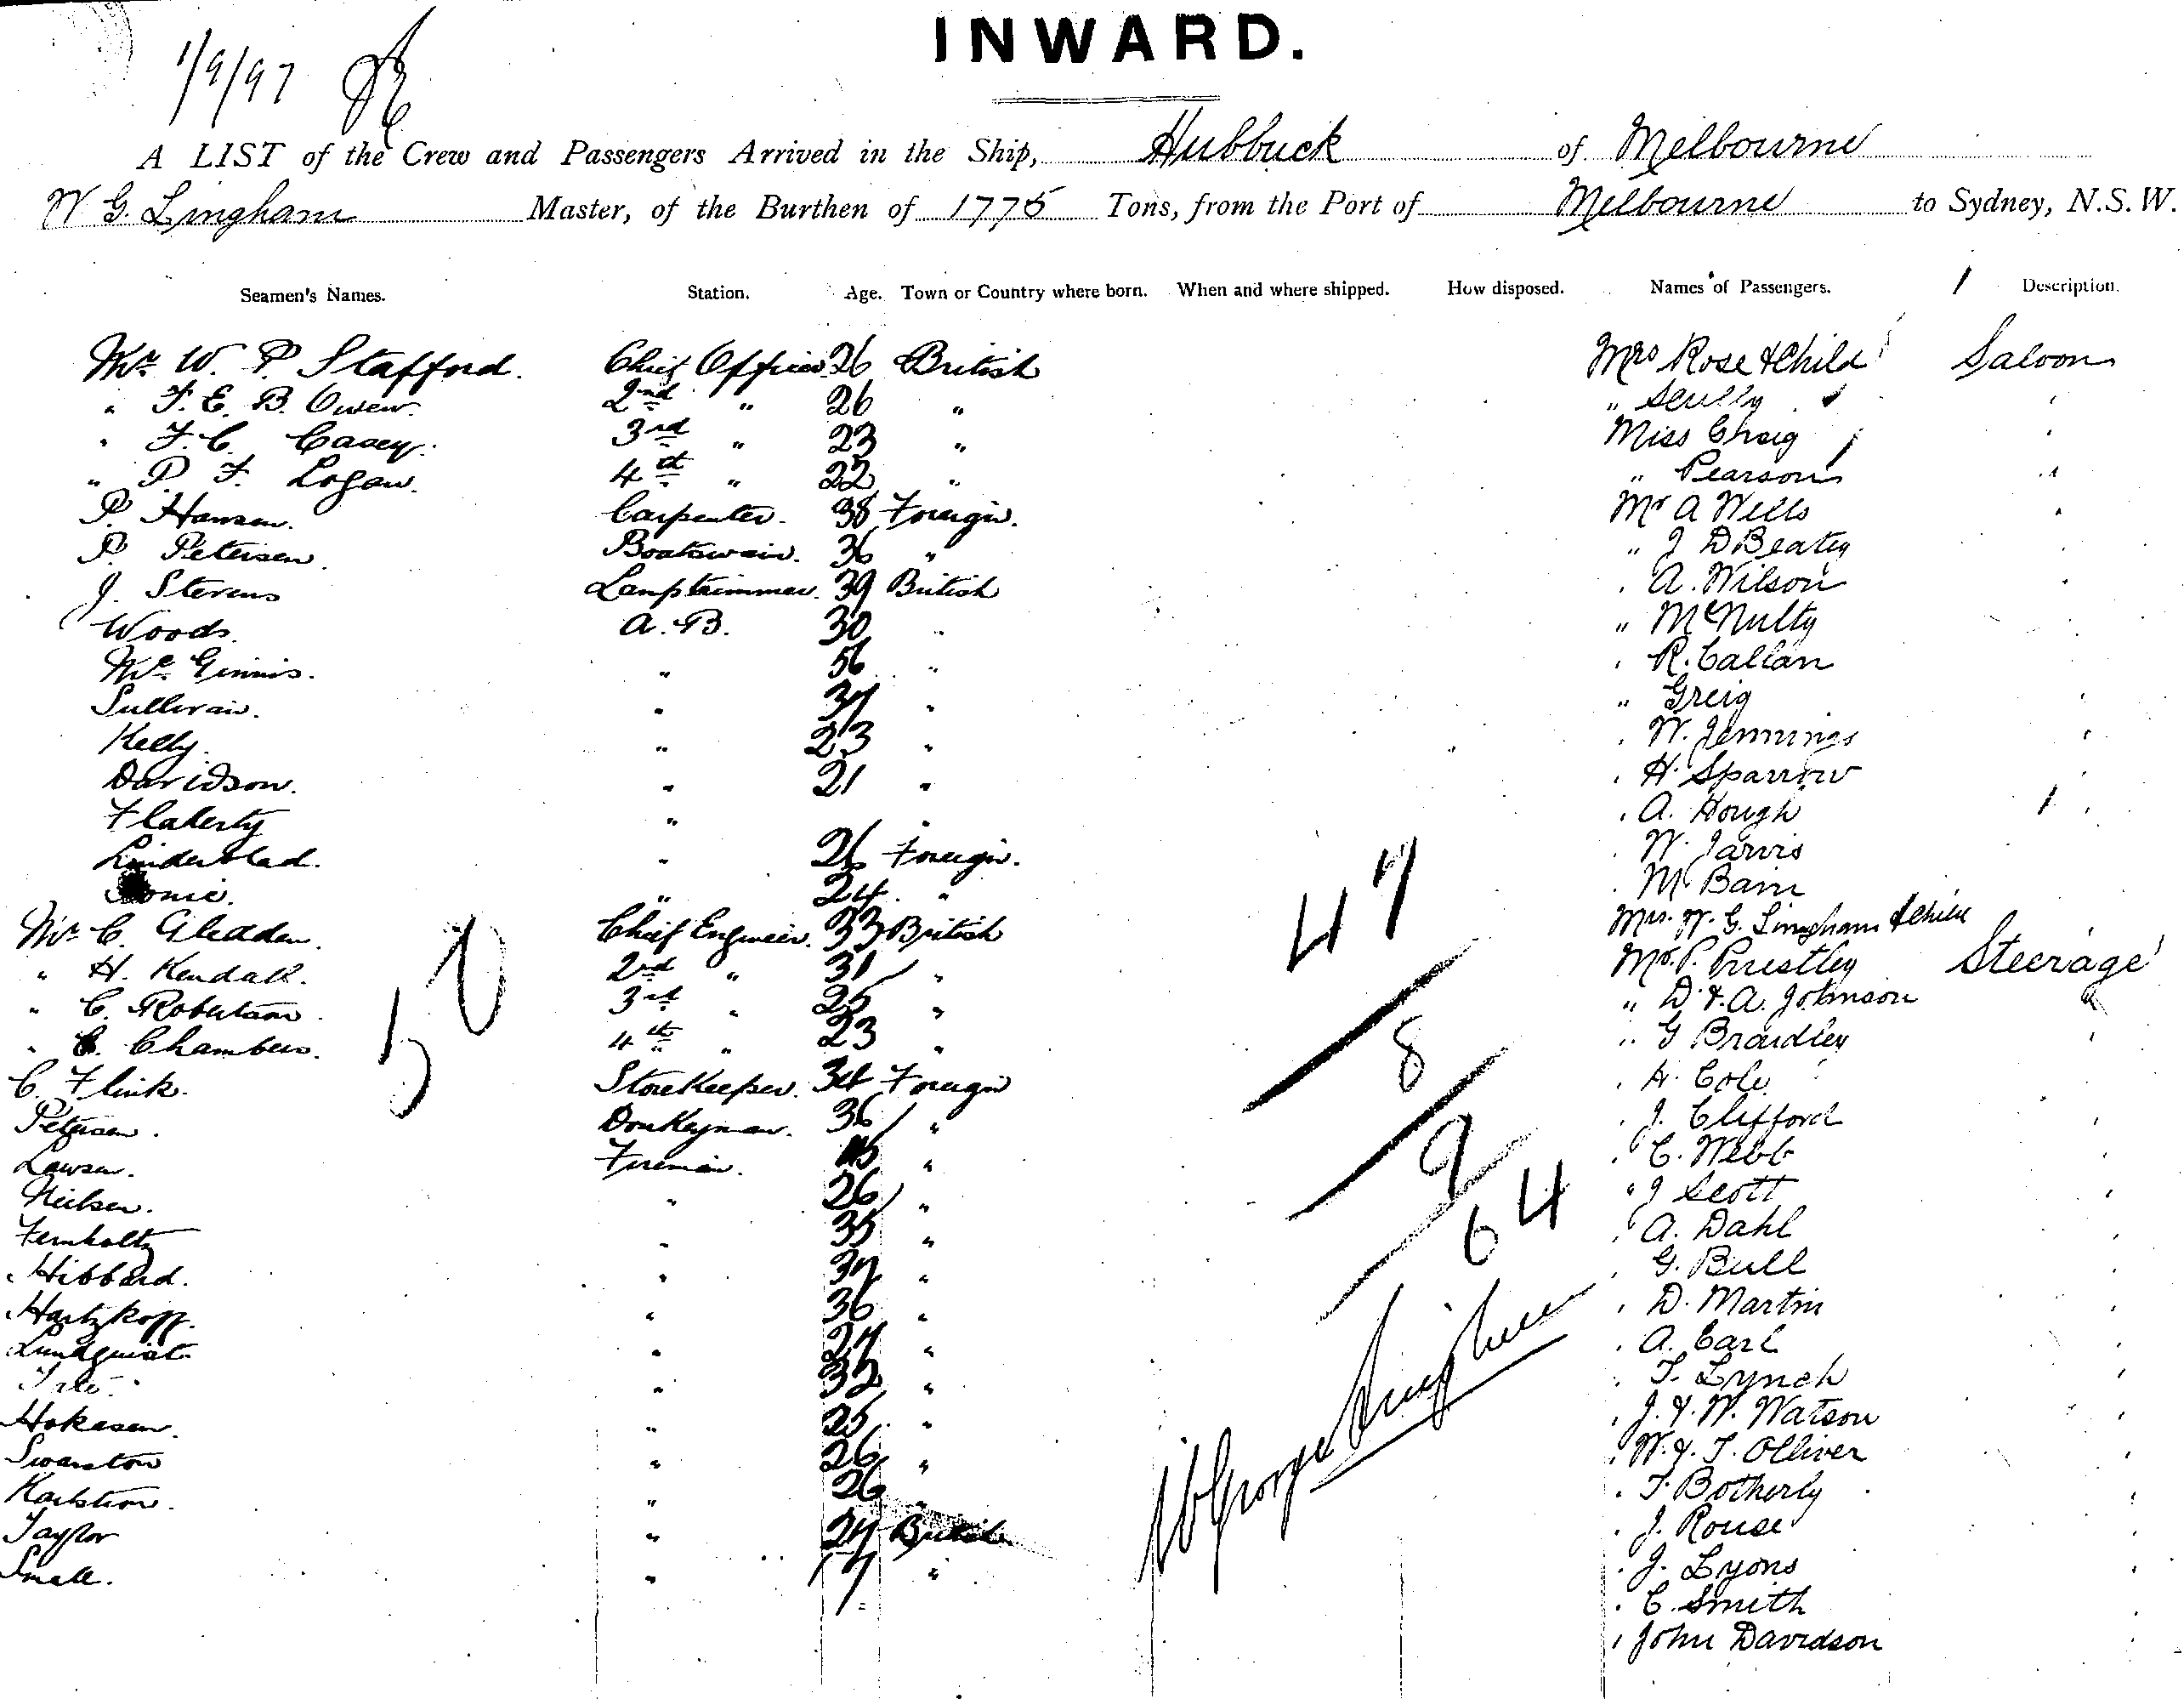 1/9/97
INWARD.
A LIST of the Crew and Passengers Arrived in the Ship, Hubbuck of Melbourne
W G. Lingham Master, of the Burthen of 1775 Tons, from the Port of Melbourne to Sydney, N.S.W.
Seamen's Names. Station. Age. Town or Country where born. When and where shipped. How disposed. Names of Passengers. Description.
Mr. W. P. Stafford. Chief Officer 26 British Mrs Rose & Child Saloon
" F. E. B. Owen. 2nd " 26 " " Scully
" F. C. Casey. 3rd " 23 " Miss Craig
" P. F. Logan. 4th " 22 " " Pearson
P. Hansen. Carpenter. 38 Foreign. Mr A Wells
P. Petersen. Boatswain. 36 " " J D Beatey
J. Stevens Lamptrimmer. 39 British " A. Wilson
Woods. A.B. 30 " " McNulty
McGinnis. " 56 " " R. Callan
Sullivan. " 37 " " Greig
Kelly. " 23 " " W. Jennings
Davidson. " 21 " " H. Sparrow
Flaherty " " " A. Hough
" 26 Foreign. " W. Jarvis
" 24 " " M Bain
Mr. C. Gleadden. Chief Engineer. 33 British Mrs. W. G. Lingham & Child
" H. Kendall. 2nd " 31 " Mr. P. Priestley Steerage
" C. Robertson. 3rd " 25 " " D. & A. Johnson
" Chambers. 4th " 23 " " G Brandley
C. Flink. StoreKeeper. 34 Foreign " H. Cole
Petersen. Donkeyman. 36 " " J. Clifford
Lawsen. Fireman. " " C. Webb
Nielsen. " 26 " " J Scott
Fernholtz " 35 " " A. Dahl
Hibbard. " 37 " " G. Bull
Hartzkopf. " 36 " " D. Martin
Lundquist " 27 " " A. Carl
" 32 " " T. Lynch
Hokasen. " 25 " " J. & W. Watson
Swanston " 26 " " W. & T. Olliver
Karlstrom. " 26 " " T. Botherly
Taylor " 27 British " J. Rouse
Small. " 17 " " J. Lyons
" C. Smith
" John Davidson
50
47
8
9
64
W George Lingham